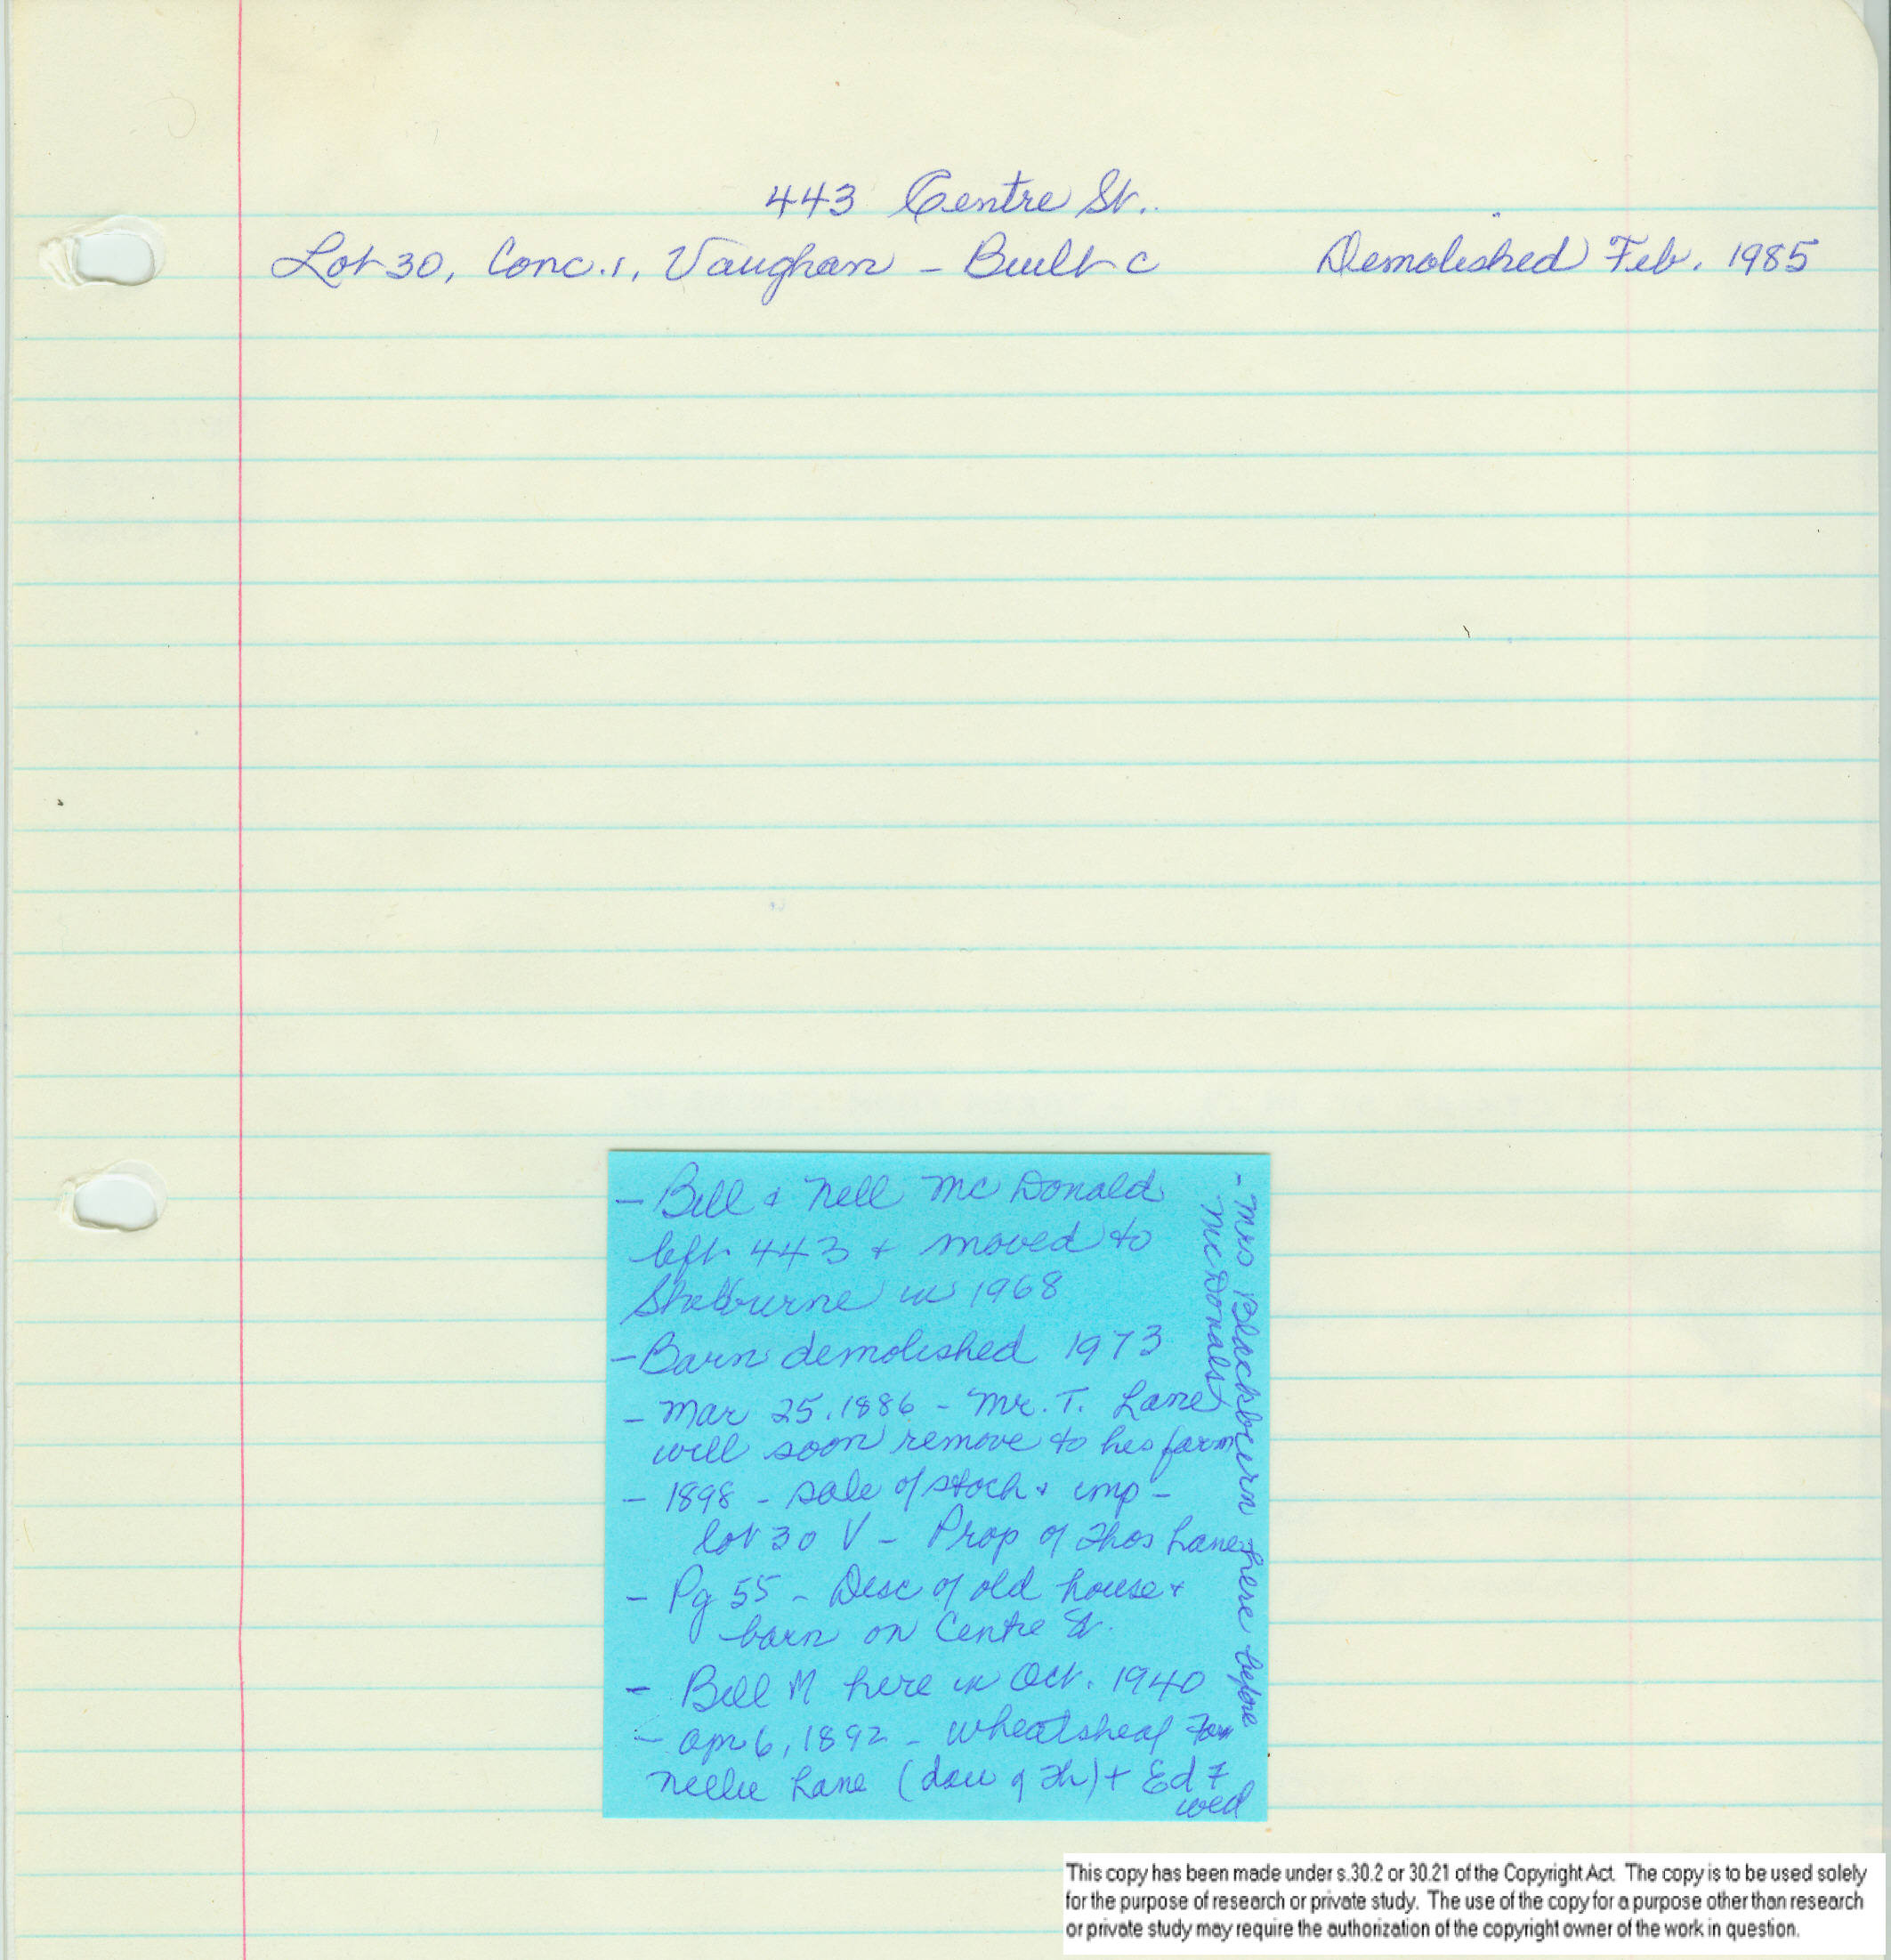 443 Centre St.
Lot 30, Conc. 1, Vaughan - Built c Demolished Feb. 1985
- Bill & Nell McDonald
left 443 & moved to
Shelburne in 1968
- Barn demolished 1973
- Mar 25, 1886 - Mr. T. Lane
will soon remove to his farm
- 1898 - sale of stock & imp -
lot 30 V - Prop of Thos Lane
- Pg 55 - Desc of old house &
barn on Centre St.
- Bill M here in Oct. 1940
- Apr 6, 1892 - Wheatsheaf Farm
Nellie Lane (dau of Th) + Ed F
wed
- Mrs Blackburn here before
McDonalds
This copy has been made under s.30.2 or 30.21 of the Copyright Act. The copy is to be used solely
for the purpose of research or private study. The use of the copy for a purpose other than research
or private study may require the authorization of the copyright owner of the work in question.